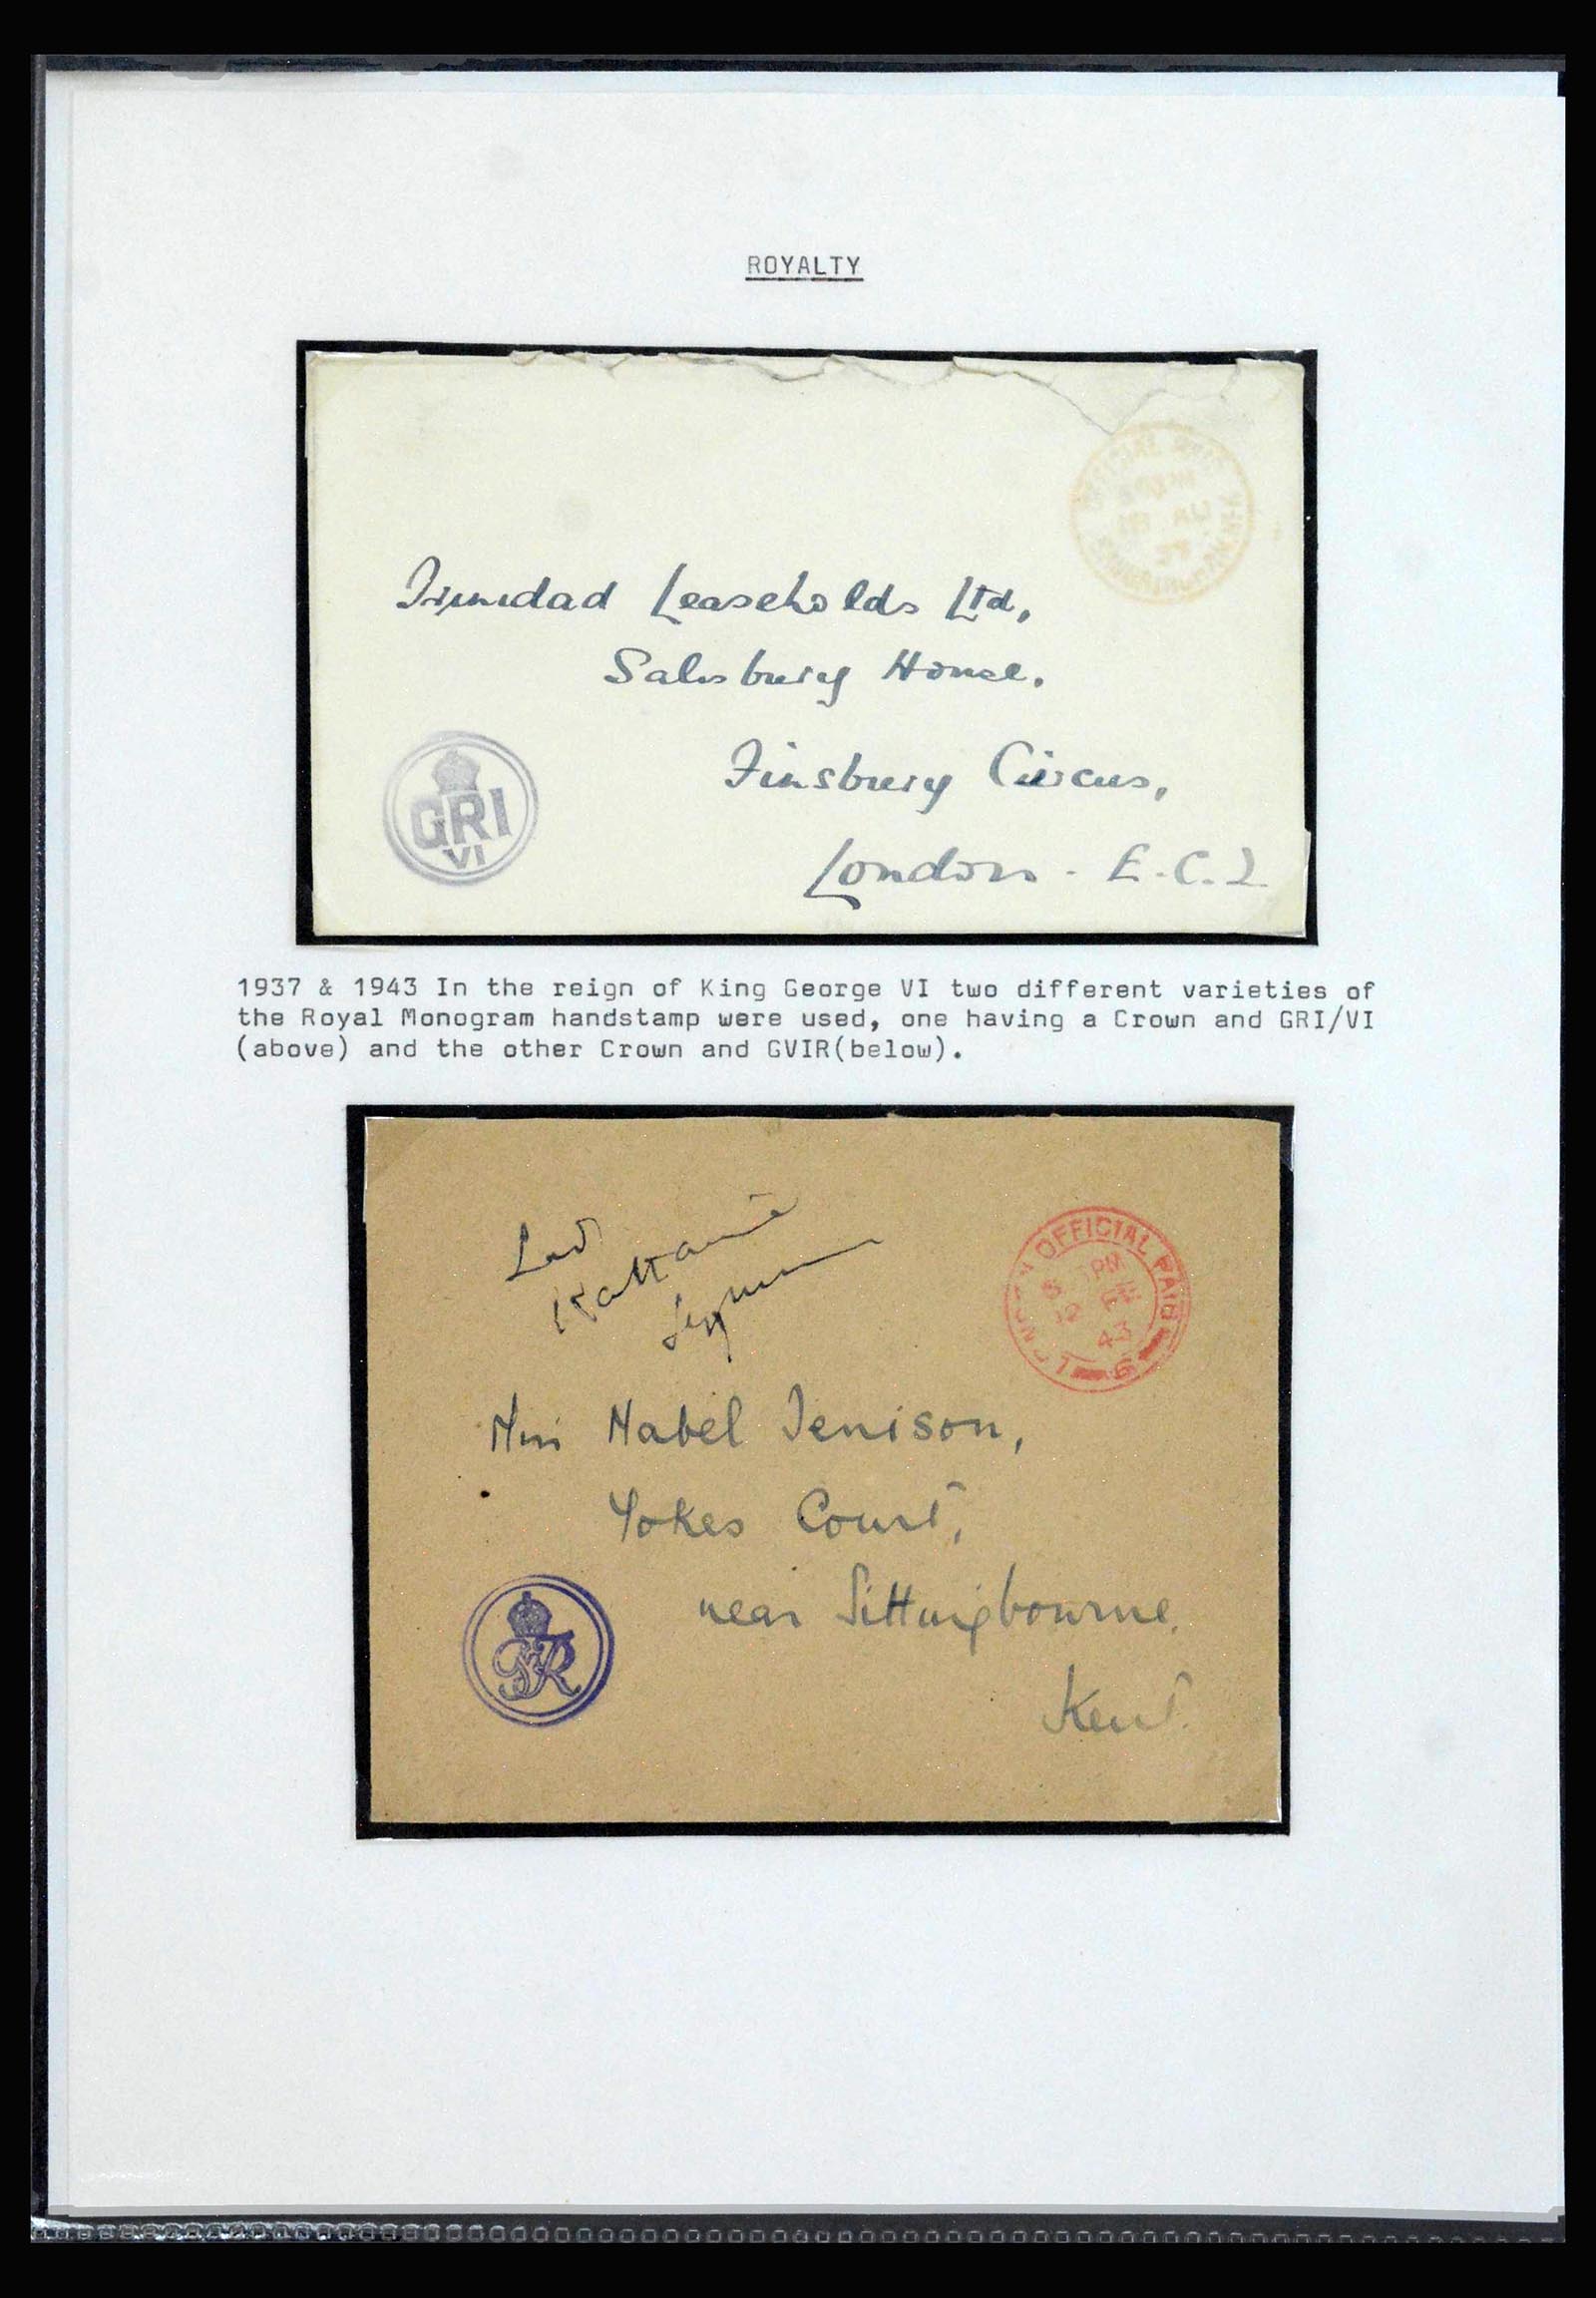 ROYALTY
OFFICIAL PAID
AU
Trinidad Leaseholds Ltd,
Salisbury House.
Finsbury Circus,
London - E.C.2
GRI
VI
1937 & 1943 In the reign of King George VI two different varieties of
the Royal Monogram handstamp were used, one having a Crown and GRI/VI
(above) and the other Crown and GVIR(below).
Katharine
Seymour
OFFICIAL PAID
PM
12 FE
43
Miss Mabel Jenison,
Yokes Court,
near Sittingbourne,
Kent.
GVIR